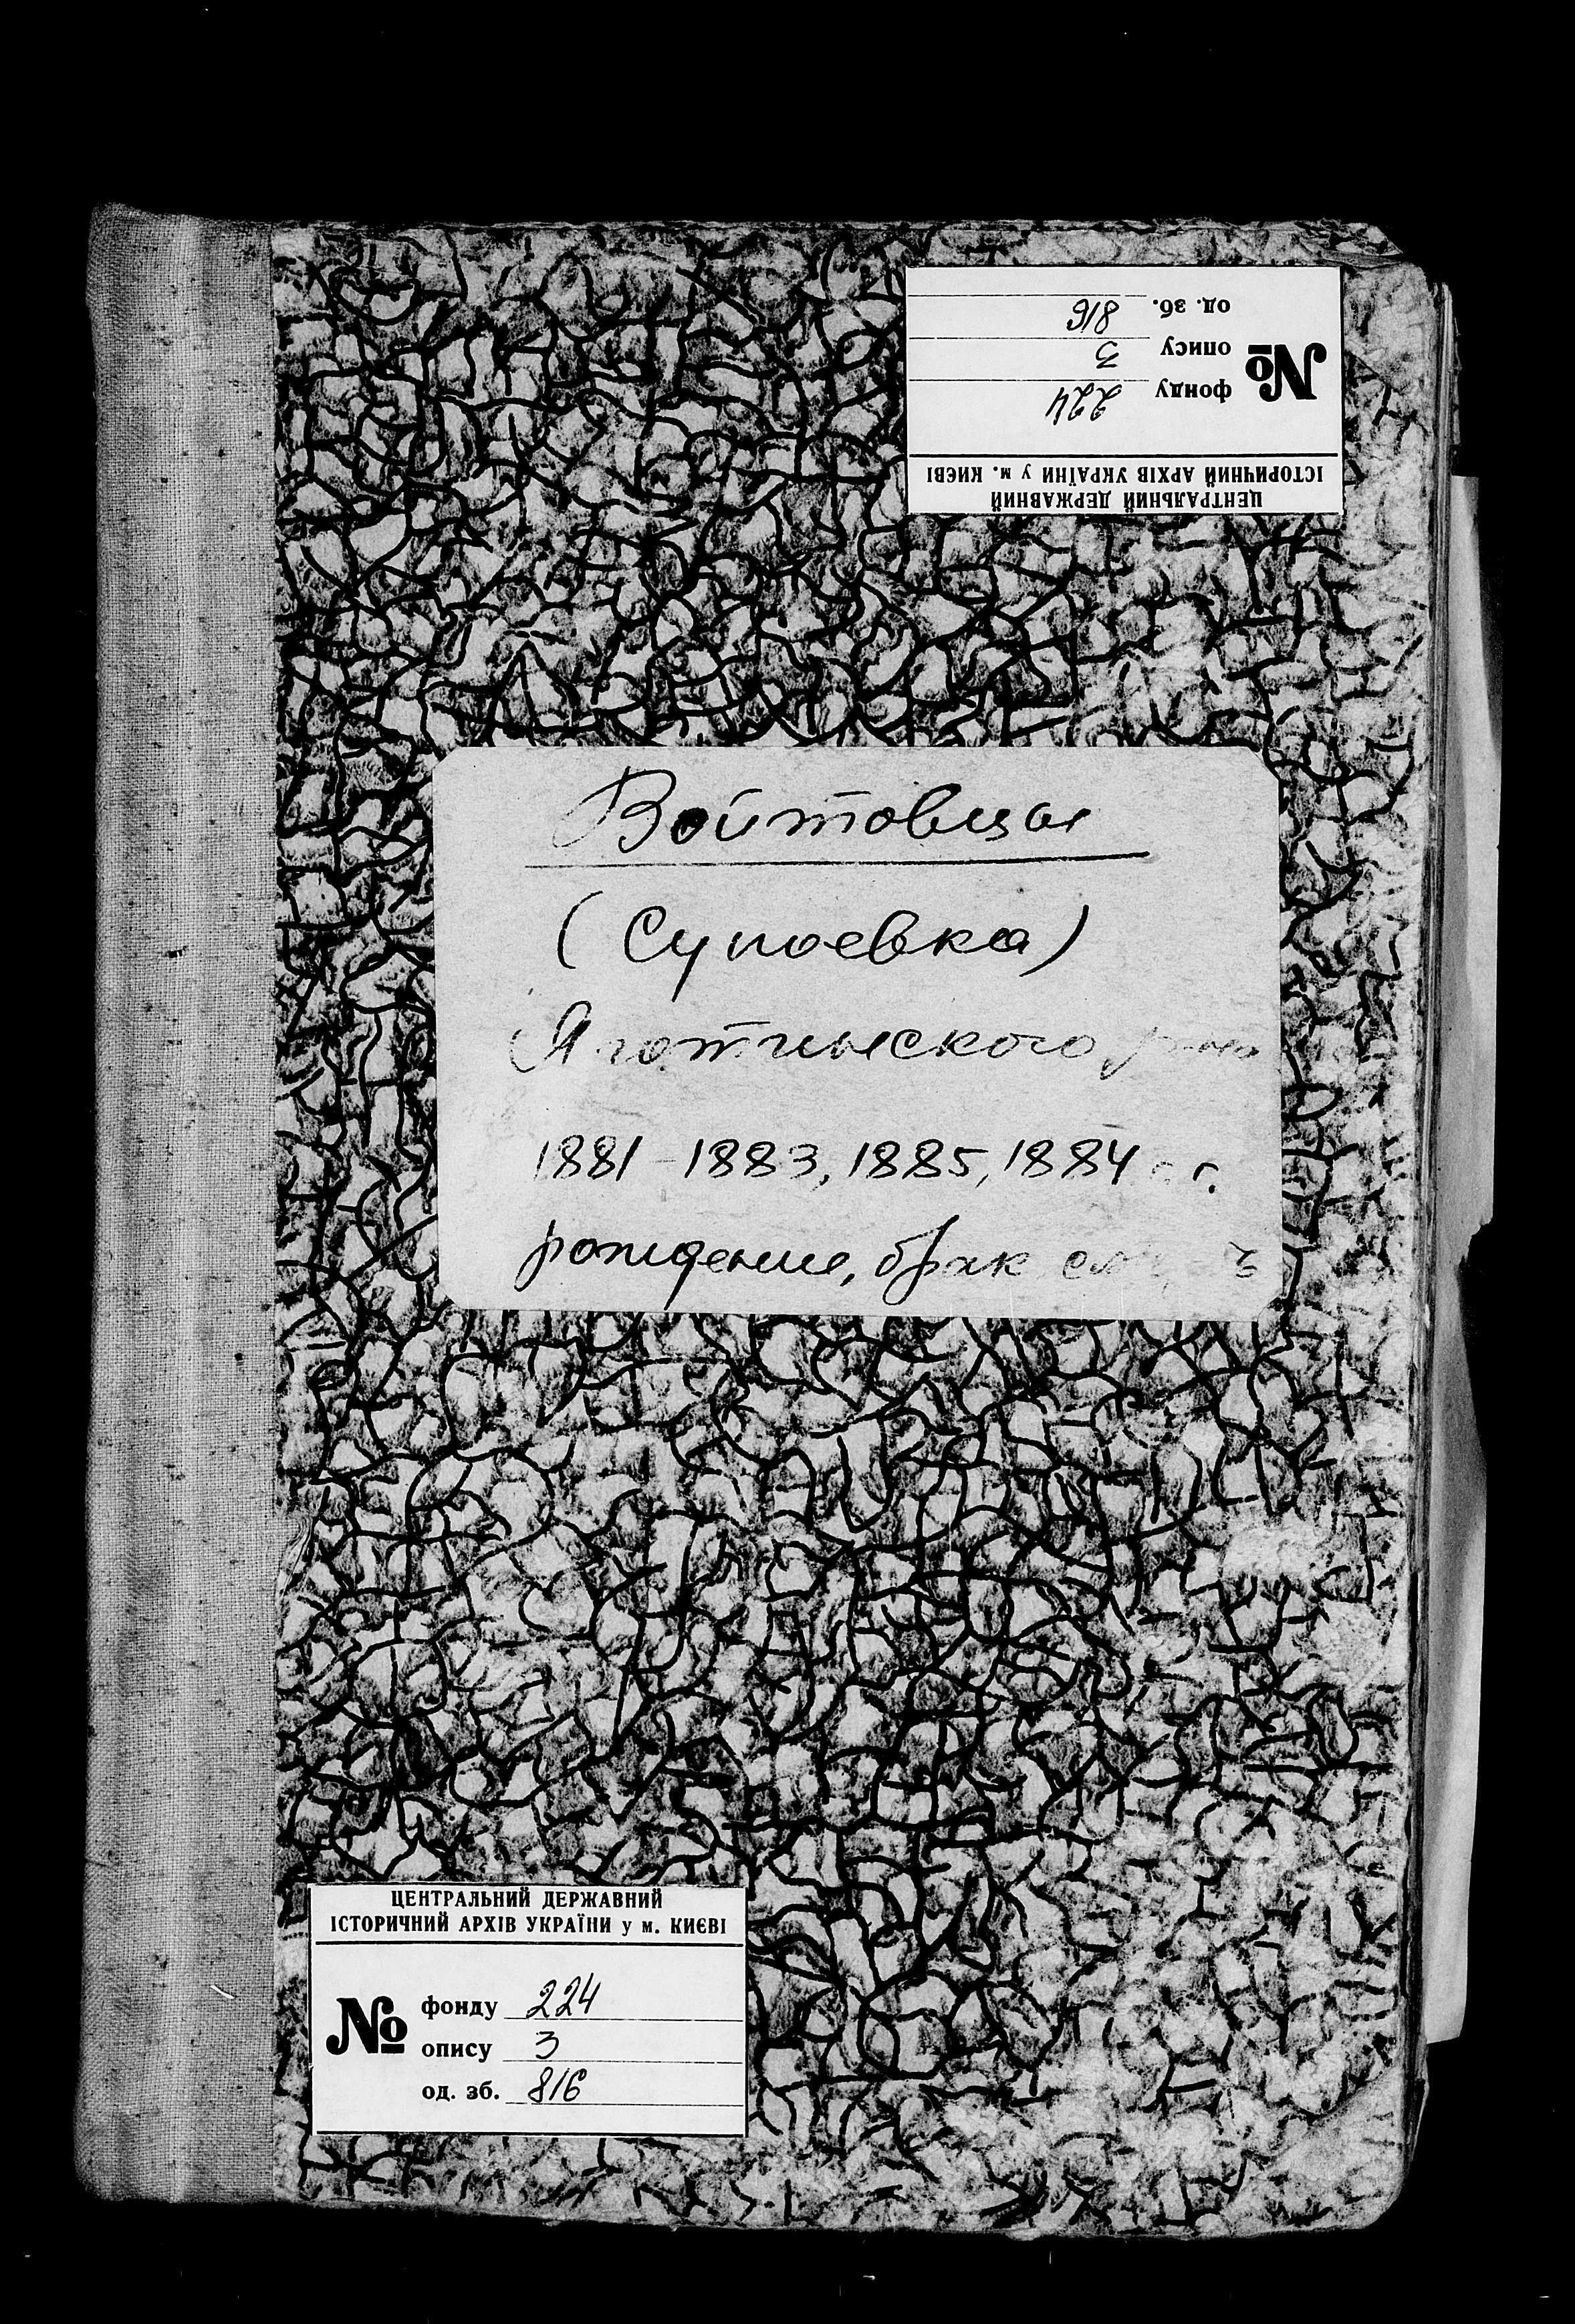 ЦЕНТРАЛЬНИЙ ДЕРЖАВНИЙ
ІСТОРИЧНИЙ АРХІВ УКРАЇНИ у м. КИЄВІ
№
фонду 224
опису 3
од. зб. 816
Войтовцы
(Супоевка)
Яготинского
1881-1883, 1885, 1884 г.
рождение, брак
ЦЕНТРАЛЬНИЙ ДЕРЖАВНИЙ
ІСТОРИЧНИЙ АРХІВ УКРАЇНИ у м. КИЄВІ
№
фонду 224
опису 3
од. зб. 816